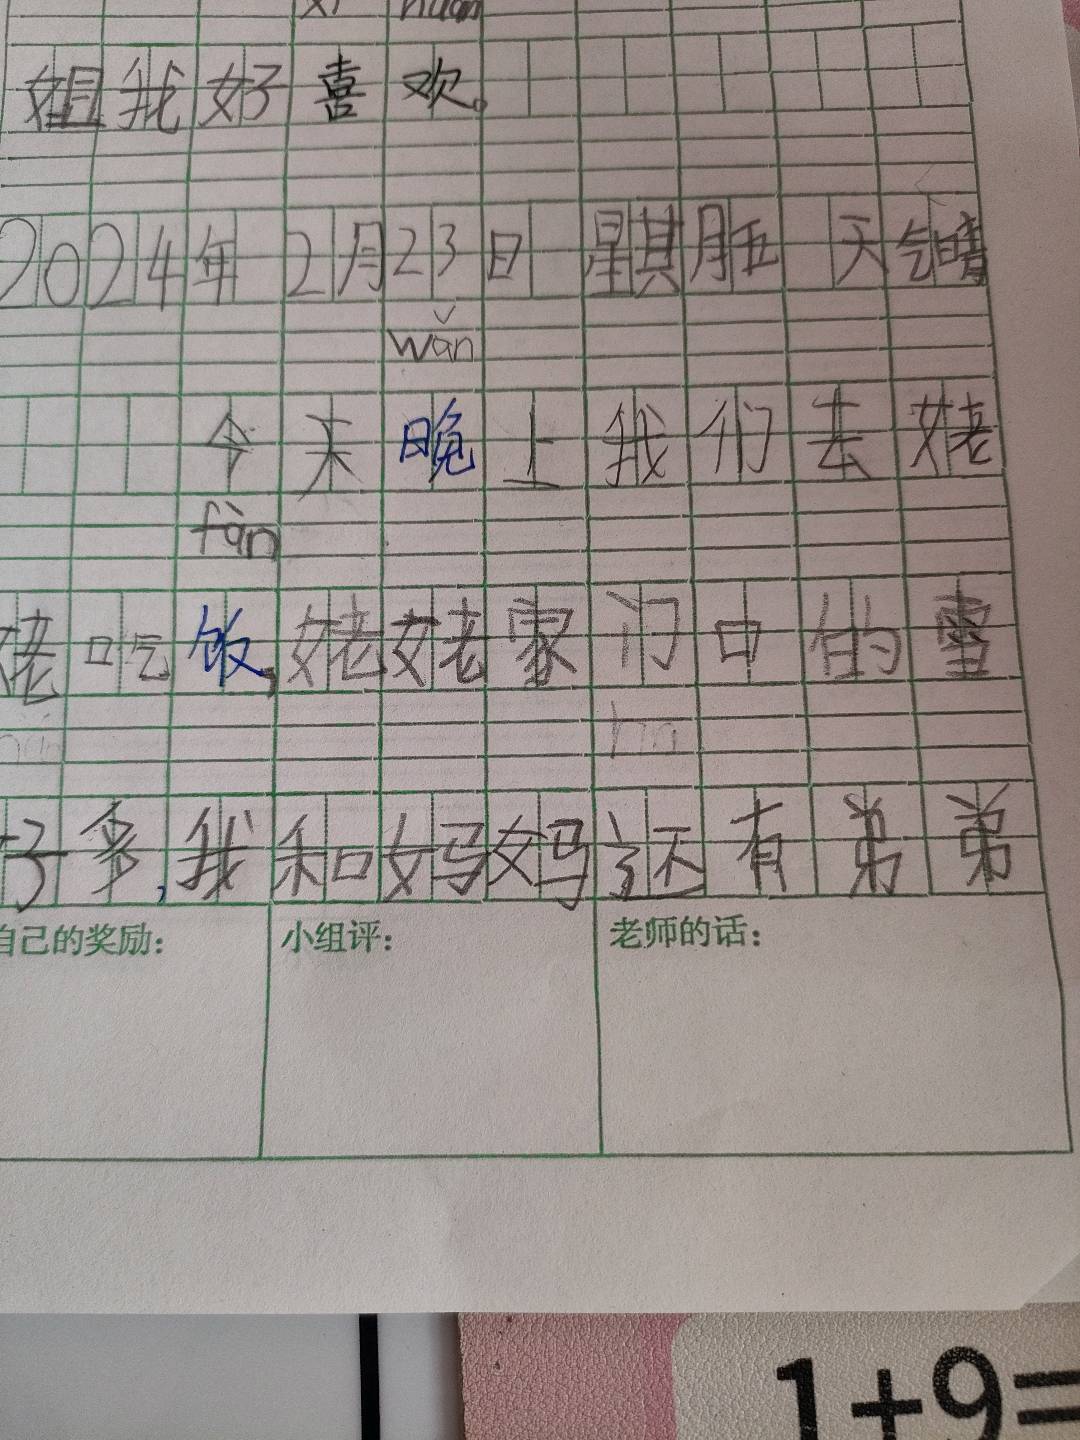 xi huan
姐我好喜欢。
2024年2月23日 星期五 天气晴
wǎn
今天晚上我们去姥
fàn
姥吃饭,姥姥家门口的雪
好多,我和妈妈还有弟弟
自己的奖励: 小组评: 老师的话:
1+9=